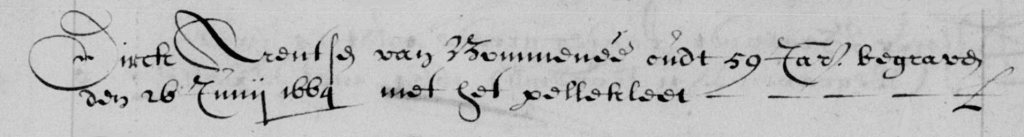 Dirck Arentse van Bommeneé oudt 59 Jar. begraven
den 26 Junij 1664 met het pellekleet